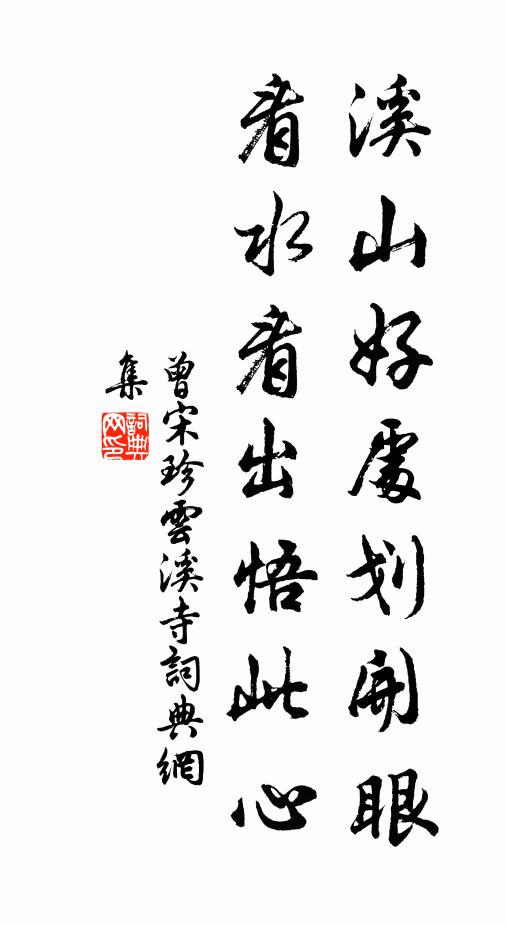 溪山好處划開眼
看水看出悟此心
曾宋珍雲溪寺詞典網
集
詞典網印